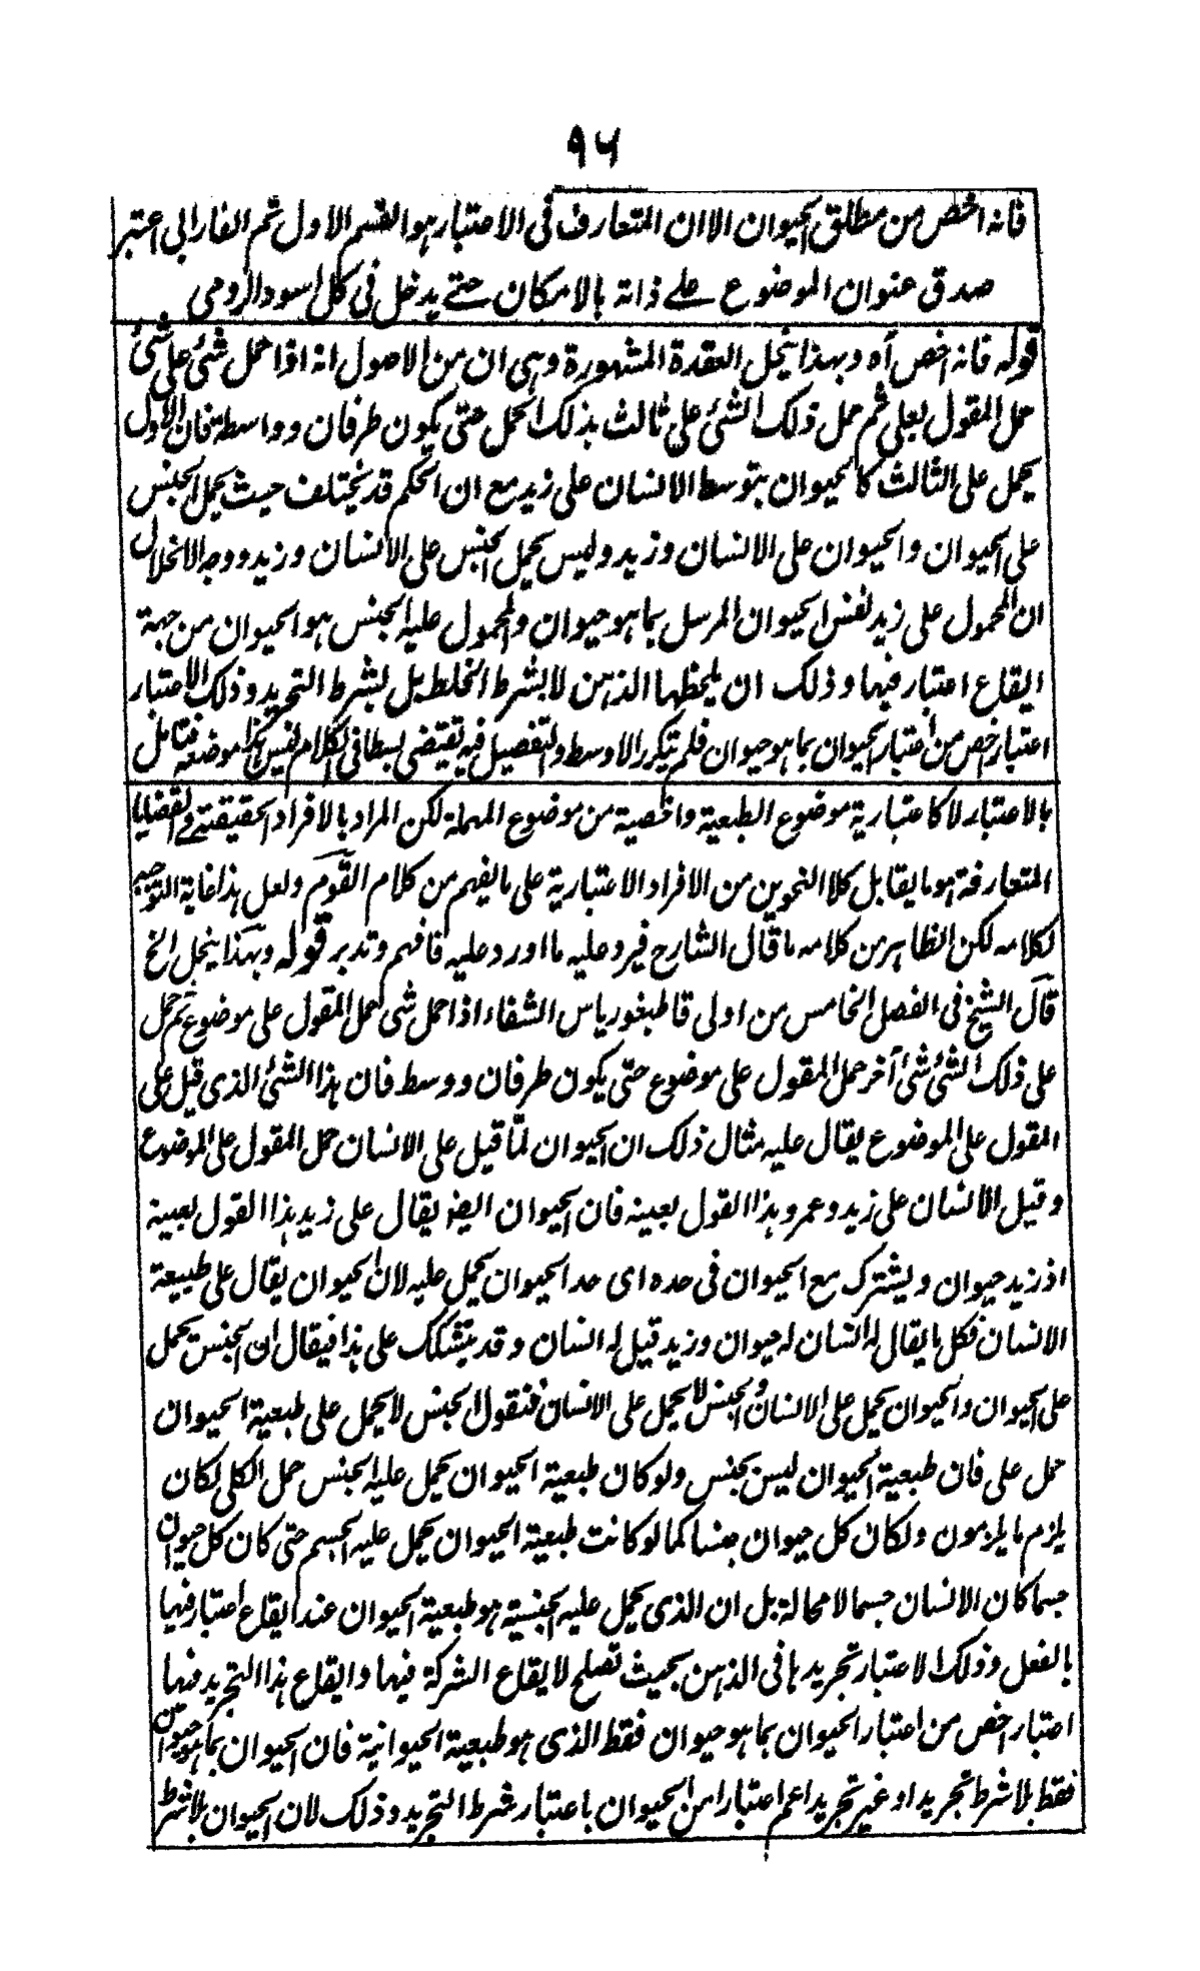 ٩٦
فانه اخص من مطلق الحيوان الا ان المتعارف فى الاعتبار هو القسم الاول ثم الفارابى اعتبر
صدق عنوان الموضوع على ذاته بالامكان حتے يدخل فى كل اسود الرومى
قوله فانه اخص آه وبهذا ينحل العقدة المشهورة وهى ان من الاصول انه اذا حمل شئ على شئ
حمل المقول بعلى ثم حمل ذلك الشئ على ثالث بذلك الحمل حتى يكون طرفان وواسطة فان الاول
يحمل على الثالث كالحيوان بتوسط الانسان على زيد مع ان الحكم قد يختلف حيث يحمل الجنس
على الحيوان والحيوان على الانسان وزيد وليس يحمل الجنس على الانسان وزيد ووجه الانحلال
ان المحمول على زيد نفس الحيوان المرسل بما هو حيوان والمحمول عليه الجنس هو الحيوان من جهة
ايقاع اعتبار فيها وذلك ان يلحظها الذهن لا بشرط الخلط بل بشرط التجريد وذلك الاعتبار
اعتبار اخص من اعتبار الحيوان بما هو حيوان فلم يتكرر الاوسط والتفصيل فيه يقتضى بسطا فى الكلام ليس هذا موضعه فتامل
بالاعتبار لا كاعتبارية موضوع الطبعية واخصية من موضوع المهملة لكن المراد بالافراد الحقيقتے فى القضايا
المتعارفة هو ما يقابل كلا النحوين من الافراد الاعتبارية على ما يفهم من كلام القوم ولعل هذا غاية التوجيه
لكلامه لكن الظاهر من كلامه ما قال الشارح فيرد عليه ما اورد عليه فافهم وتدبر قوله وبهذا ينحل الخ
قال الشيخ فى الفصل الخامس من اولى قاطيغورياس الشفاء اذا حمل شئ حمل المقول على موضوع ثم حمل
على ذلك الشئ شئ آخر حمل المقول على موضوع حتى يكون طرفان ووسط فان هذا الشئ الذى قيل على
المقول على الموضوع يقال عليه مثال ذلك ان الحيوان لما قيل على الانسان حمل المقول على الموضوع
وقيل الانسان على زيد وعمرو هذا القول بعينه فان الحيوان ايضا يقال على زيد هذا القول بعينه
اذ زيد حيوان ويشترك مع الحيوان فى حده اى حد الحيوان يحمل عليه لان الحيوان يقال على طبيعة
الانسان فكل ما يقال له انسان له حيوان وزيد قيل له انسان وقد يتشكك على هذا فيقال ان الجنس يحمل
على الحيوان والحيوان يحمل على الانسان والجنس لا يحمل على الانسان فنقول الجنس لا يحمل على طبعية الحيوان
حمل على فان طبعية الحيوان ليس بجنس ولو كان طبعية الحيوان يحمل عليه الجنس حمل الكلى لكان
يلزم ما يلزمون ولكان كل حيوان جنسا كما لو كانت طبعية الحيوان يحمل عليه الجسم حتى كان كل حيوان
جسما كان الانسان جسما لا محالة بل ان الذى يحمل عليه الجنسية هو طبعية الحيوان عند ايقاع اعتبار فيها
بالفعل وذلك الاعتبار تجريدها فى الذهن بحيث تصلح لايقاع الشركة فيها وايقاع هذا التجريد فيها
اعتبار اخص من اعتبار الحيوان بما هو حيوان فقط الذى هو طبعية الحيوانية فان الحيوان بما هو حيوان
فقط بلا شرط تجريد او غير تجريد اعم اعتبارا من الحيوان باعتبار شرط التجريد وذلك لان الحيوان بلا شرط